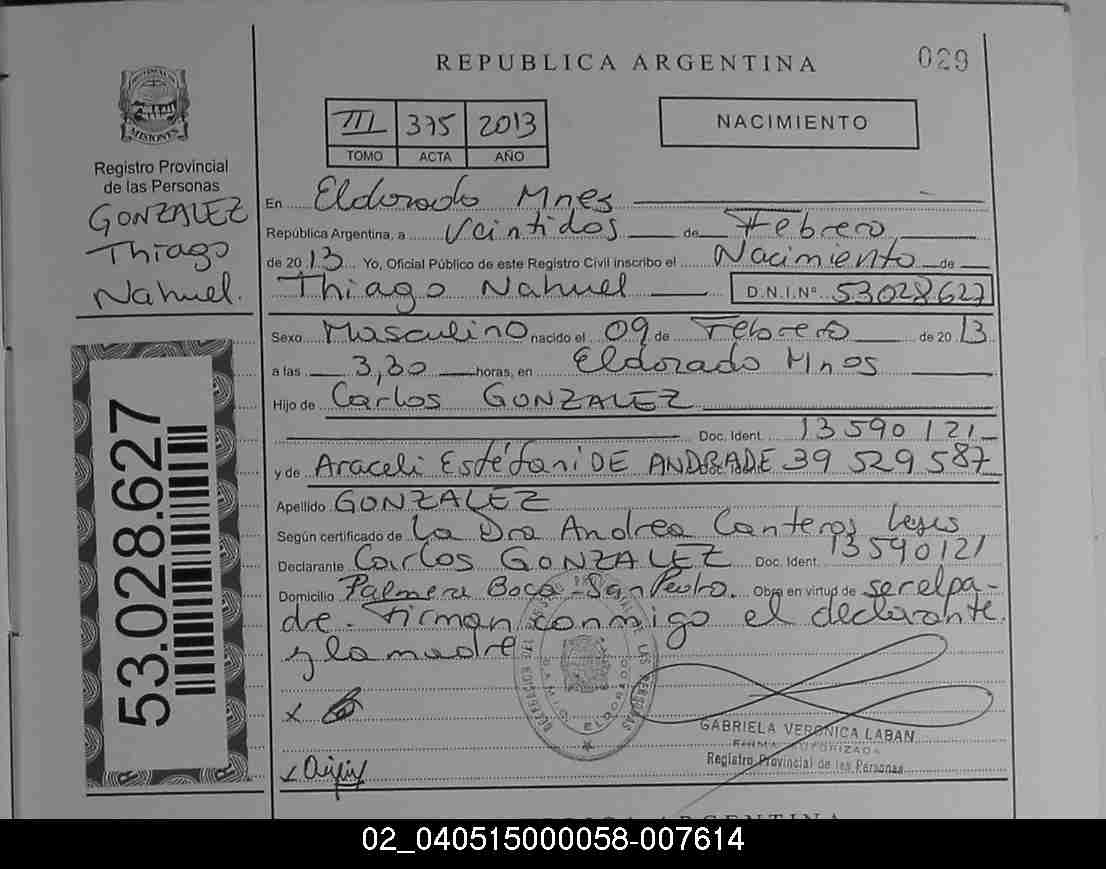 REPUBLICA ARGENTINA
029
MISIONES
Registro Provincial
de las Personas
GONZALEZ
Thiago
Nahuel.
53.028.627
III 375 2013
TOMO ACTA AÑO
NACIMIENTO
En Eldorado Mnes
República Argentina, a Veintidos de Febrero
de 2013 Yo, Oficial Público de este Registro Civil inscribo el Nacimiento de
Thiago Nahuel D.N.I.Nº 53028627
Sexo Masculino nacido el 09 de Febrero de 2013
a las 3,30 horas, en Eldorado Mnes
Hijo de Carlos GONZALEZ
Doc. Ident. 13590121
y de Araceli Estéfani DE ANDRADE 39 529 587
Apellido GONZALEZ
Según certificado de La Dra Andrea Canteros
Declarante Carlos GONZALEZ Doc. Ident. 13590121
Domicilio Palmera Boca - San Pedro. Obra en virtud de ser el pa-
dre. Firman conmigo el declarante
y la madre
x
ELDORADO
GABRIELA VERONICA LABAN
FIRMA AUTORIZADA
Registro Provincial de las Personas
ARGENTINA
02_040515000058-007614